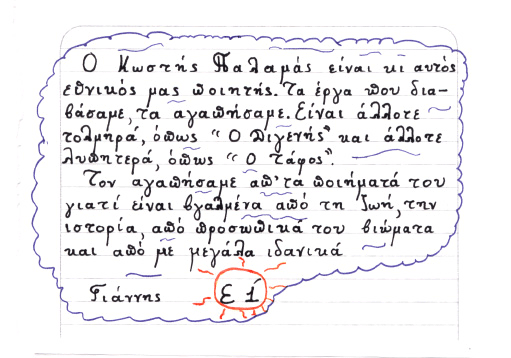 Ο Κωστής Παλαμάς είναι κι αυτός
εθνικός μας ποιητής. Τα έργα που δια-
βάσαμε, τα αγαπήσαμε. Είναι άλλοτε
τολμηρά, όπως "Ο Διγενής" και άλλοτε
λυπητερά, όπως "Ο τάφος".
Τον αγαπήσαμε απ' τα ποιήματά του
γιατί είναι βγαλμένα από τη ζωή, την
ιστορία, από προσωπικά του βιώματα
και από με μεγάλα ιδανικά
Γιάννης Ε 1